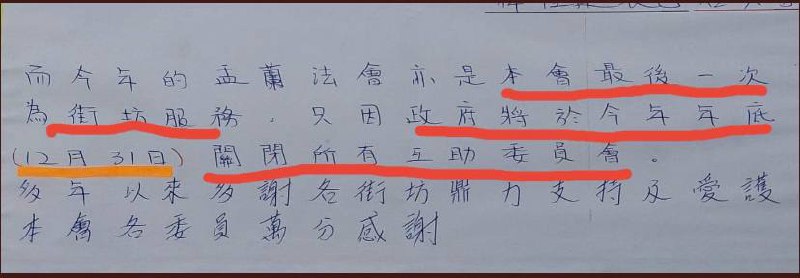 而今年的盂蘭法會亦是本會最後一次
為街坊服務，只因政府將於今年年底
(12月31日) 關閉所有互助委員會。
多年以來多謝各街坊鼎力支持及愛護
本會各委員萬分感謝